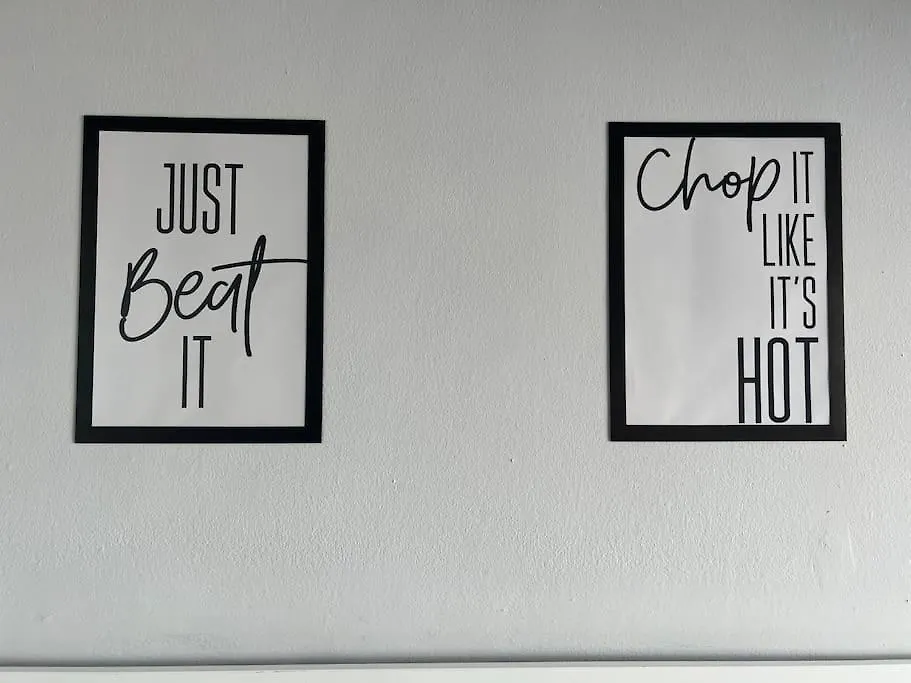 JUST
Beat
IT
Chop IT
LIKE
IT'S
HOT